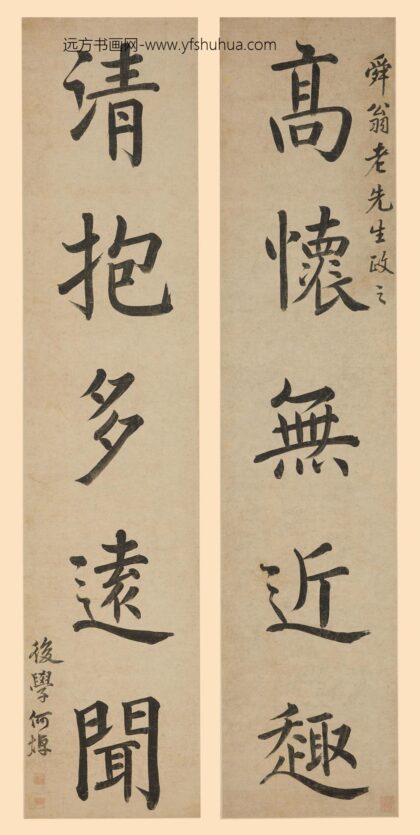 远方书画网-www.yfshuhua.com
舜翁老先生政之
高懷無近趣
清抱多遠聞
後學何焯